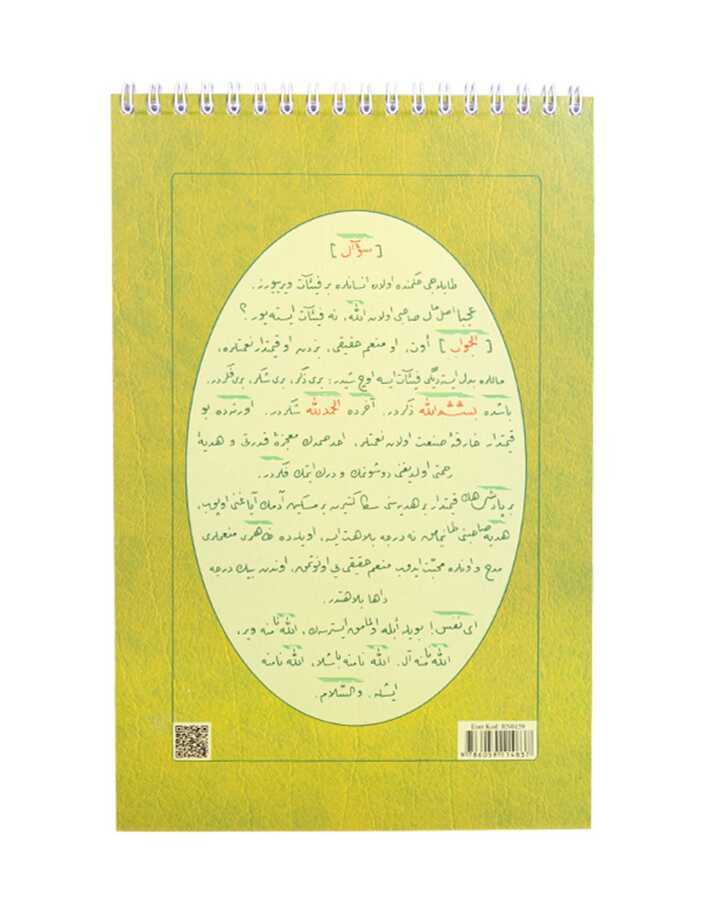 [ سؤال ]
طابلەجی حكمنده اولان انسانلره بر فیئات ویریيورز.
عجبا اصل مال صاحبی اولان اللّٰه، نه فیئات ایسته‌یور؟
[ الجواب ] أوت، او منعم حقیقی، بزدن او قیمتدار نعمتلره،
ماللره بدل ایسته‌دیگی فیئات ایسه اوچ شیدر: بری ذكر، بری شكر، بری فكردر.
باشده بسم اللّٰه ذكردر. آخرده الحمدللّٰه شكردر. اورته‌ده بو
قیمتدار خارقۀ صنعت اولان نعمتلر، احد صمدك معجزۀ قدرتی و هدیۀ
رحمتی اولدیغنی دوشونمك و درك ایتمك فكردر.
بر پادشاهك قیمتدار بر هدیه‌سنی سكا كتیرن بر مسكین آدمك آیاغنی اوپوب،
هدیه صاحبنی طانیمامق نه درجه بلاهت ایسه، اویله‌ده ظاهری منعملری
مدح و اونلره محبت ایدوب منعم حقیقی‌یی اونوتمق، اوندن بیك درجه
داها بلاهتدر.
ای نفس! بویله أبله اولمامق ایسترسك، اللّٰه نامنه ویر،
اللّٰه نامنه آل. اللّٰه نامنه باشلا، اللّٰه نامنه
ایشله. والسّلام.
Eser Kod: RN0159